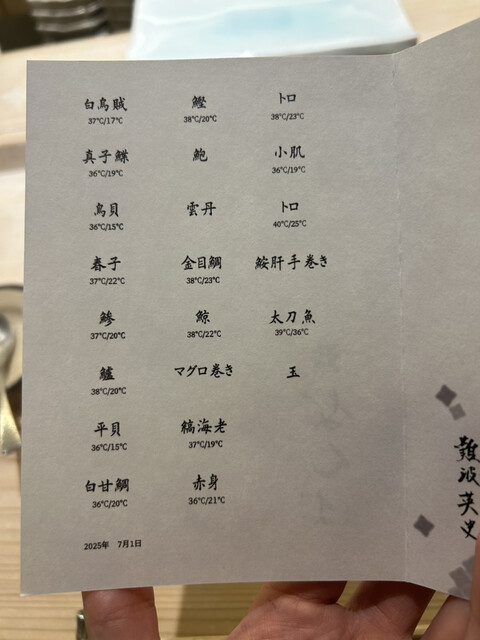 白烏賊
37℃/17℃
真子鰈
36℃/19℃
鳥貝
36℃/15℃
春子
37℃/22℃
鯵
37℃/20℃
鱸
38℃/20℃
平貝
36℃/15℃
白甘鯛
36℃/20℃
鰹
38℃/20℃
鮑
雲丹
金目鯛
38℃/23℃
鯨
38℃/22℃
マグロ巻き
縞海老
37℃/19℃
赤身
36℃/21℃
トロ
38℃/23℃
小肌
36℃/19℃
トロ
40℃/25℃
鮟肝手巻き
太刀魚
39℃/36℃
玉
2025年 7月1日
難波英史